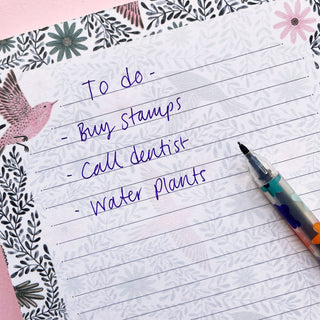 To do -
- Buy stamps
- Call dentist
- Water plants